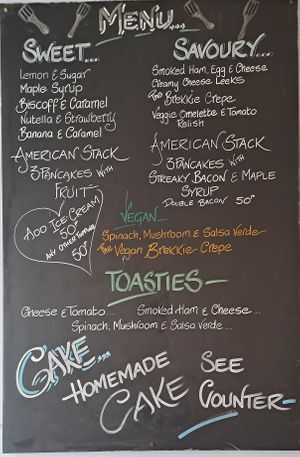 MENU...
SWEET....
Lemon & Sugar
Maple Syrup
Biscoff & Caramel
Nutella & Strawberry
Banana & Caramel
AMERICAN STACK
3 PANCAKES WITH
FRUIT
ADD ICE-CREAM
50P
ANY OTHER TOPPING
50P
SAVOURY....
Smoked Ham, Egg & Cheese
Creamy Cheesy Leeks
The Brekkie Crepe
Veggie Omelette & Tomato
Relish
AMERICAN STACK
3 PANCAKES WITH
STREAKY BACON & MAPLE
SYRUP
DOUBLE BACON 50P
VEGAN
Spinach, Mushroom & Salsa Verde
The Vegan Brekkie Crepe
TOASTIES
Cheese & Tomato... Smoked Ham & Cheese...
Spinach, Mushroom & Salsa Verde...
CAKE...
HOMEMADE
CAKE
SEE
COUNTER